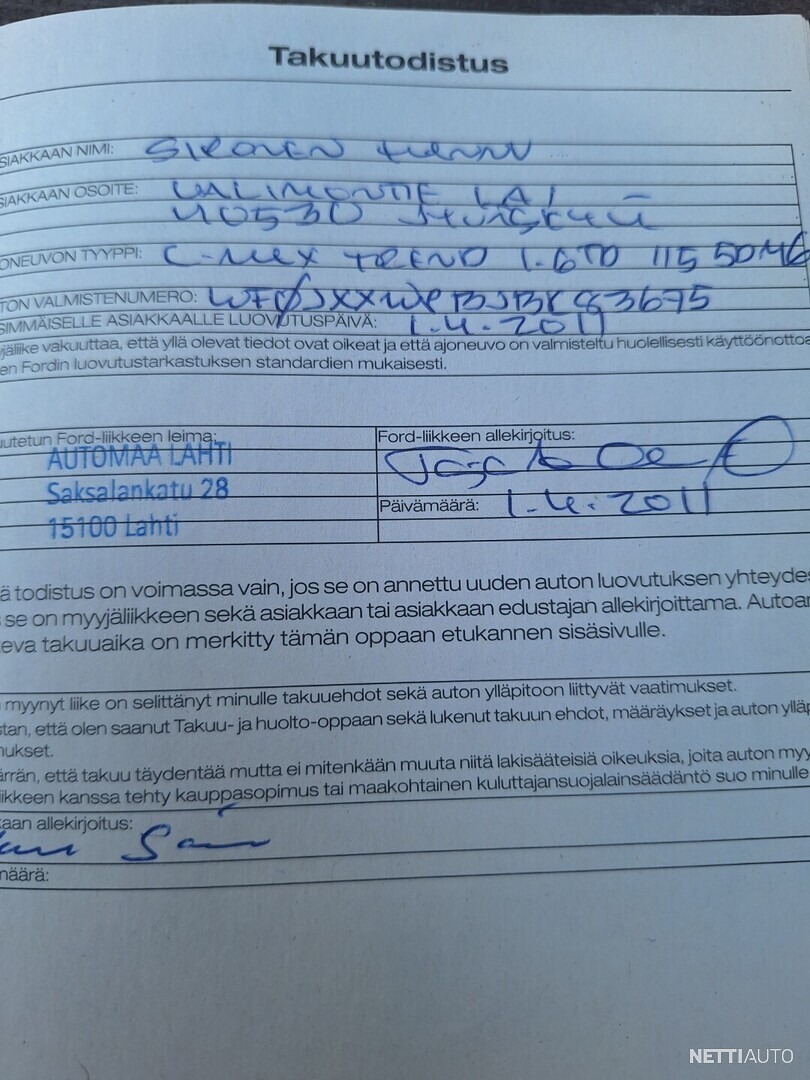 Takuutodistus
SIAKKAAN NIMI: SIRONEN
SIAKKAAN OSOITE: VALIMONTIE 1 A 1
40530
ONEUVON TYYPPI: C-MAX TREND 1.6TD 115 5OM6
TON VALMISTENUMERO: WFØJXXWPBJBK83675
SIMMÄISELLE ASIAKKAALLE LUOVUTUSPÄIVÄ: 1.4.2011
yjäliike vakuuttaa, että yllä olevat tiedot ovat oikeat ja että ajoneuvo on valmisteltu huolellisesti käyttöönottoa
en Fordin luovutustarkastuksen standardien mukaisesti.
utetun Ford-liikkeen leima:
AUTOMAA LAHTI
Saksalankatu 28
15100 Lahti
Ford-liikkeen allekirjoitus:
Päivämäärä: 1.4.2011
ä todistus on voimassa vain, jos se on annettu uuden auton luovutuksen yhteydes
s se on myyjäliikkeen sekä asiakkaan tai asiakkaan edustajan allekirjoittama. Autoar
teva takuuaika on merkitty tämän oppaan etukannen sisäsivulle.
n myynyt liike on selittänyt minulle takuuehdot sekä auton ylläpitoon liittyvät vaatimukset.
stan, että olen saanut Takuu- ja huolto-oppaan sekä lukenut takuun ehdot, määräykset ja auton ylläp
mukset.
ärrän, että takuu täydentää mutta ei mitenkään muuta niitä lakisääteisiä oikeuksia, joita auton myy
iikkeen kanssa tehty kauppasopimus tai maakohtainen kuluttajansuojalainsäädäntö suo minulle
kaan allekirjoitus:
määrä:
NETTIAUTO